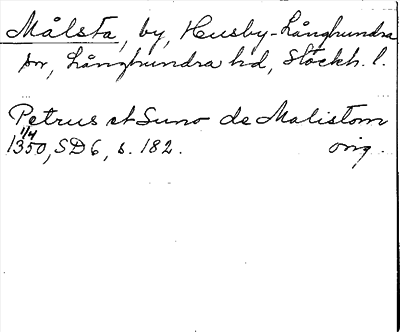 Målsta, by, Husby-Långhundra
sn, Långhundra hd, Stockh. l.
Petrus et Suno de Malistom
1/4
1350, SD 6, s. 182. orig.